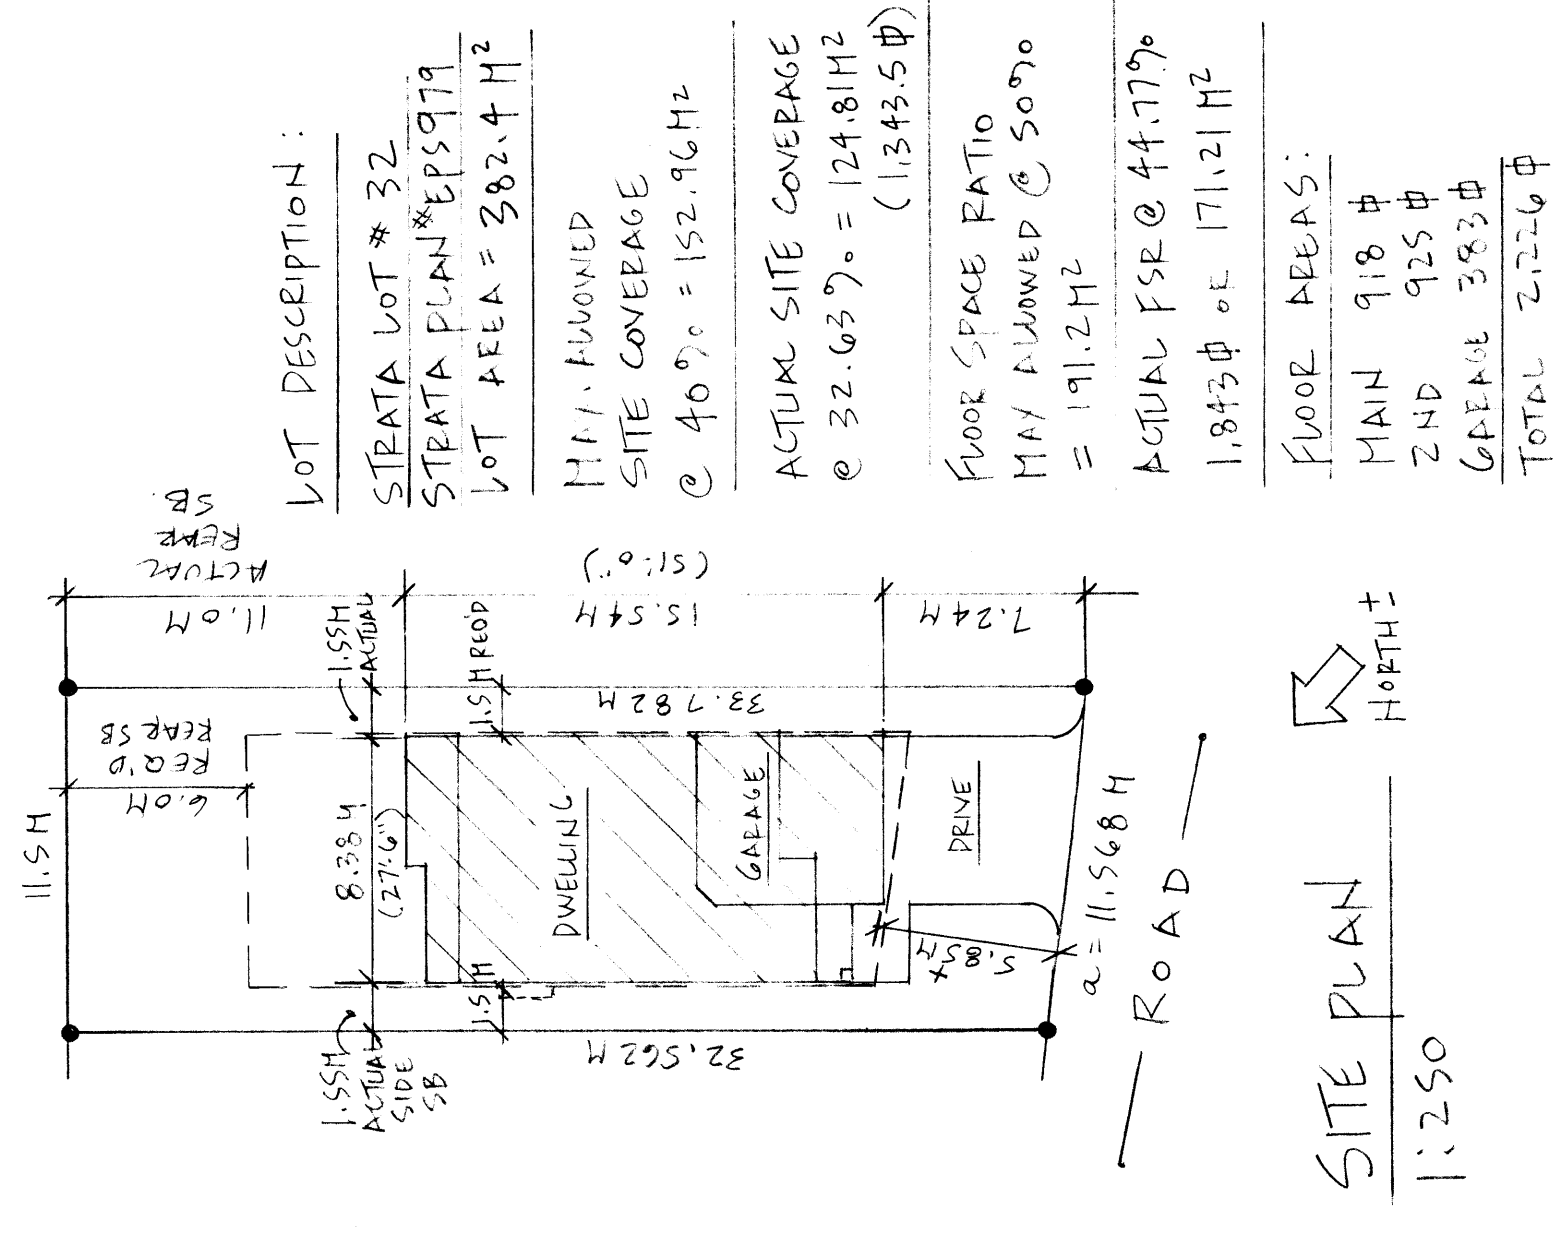 LOT DESCRIPTION:
STRATA LOT # 32
STRATA PLAN # EPS979
LOT AREA = 382.4 M²
MAX. ALLOWED
SITE COVERAGE
@ 40% = 152.96 M²
ACTUAL SITE COVERAGE
@ 32.63% = 124.81 M²
(1,343.5 ⏍)
FLOOR SPACE RATIO
MAX ALLOWED @ 50%
= 191.2 M²
ACTUAL FSR @ 44.77%
1,843 ⏍ OR 171.21 M²
FLOOR AREAS:
MAIN 918 ⏍
2ND 925 ⏍
GARAGE 383 ⏍
TOTAL 2,226 ⏍
11.5 M
6.0M
REQ'D
REAR SB
11.0M
ACTUAL
REAR
SB.
1.55M
ACTUAL
1.5 M REQ'D
15.54M
(51'-0")
7.24M
33.782 M
8.38 M
(27'-6")
DWELLING
GARAGE
DRIVE
1.5 M
1.55M
ACTUAL
SIDE
SB
32.562 M
5.85M
±
a = 11.568 M
ROAD
NORTH ±
SITE PLAN
1:250